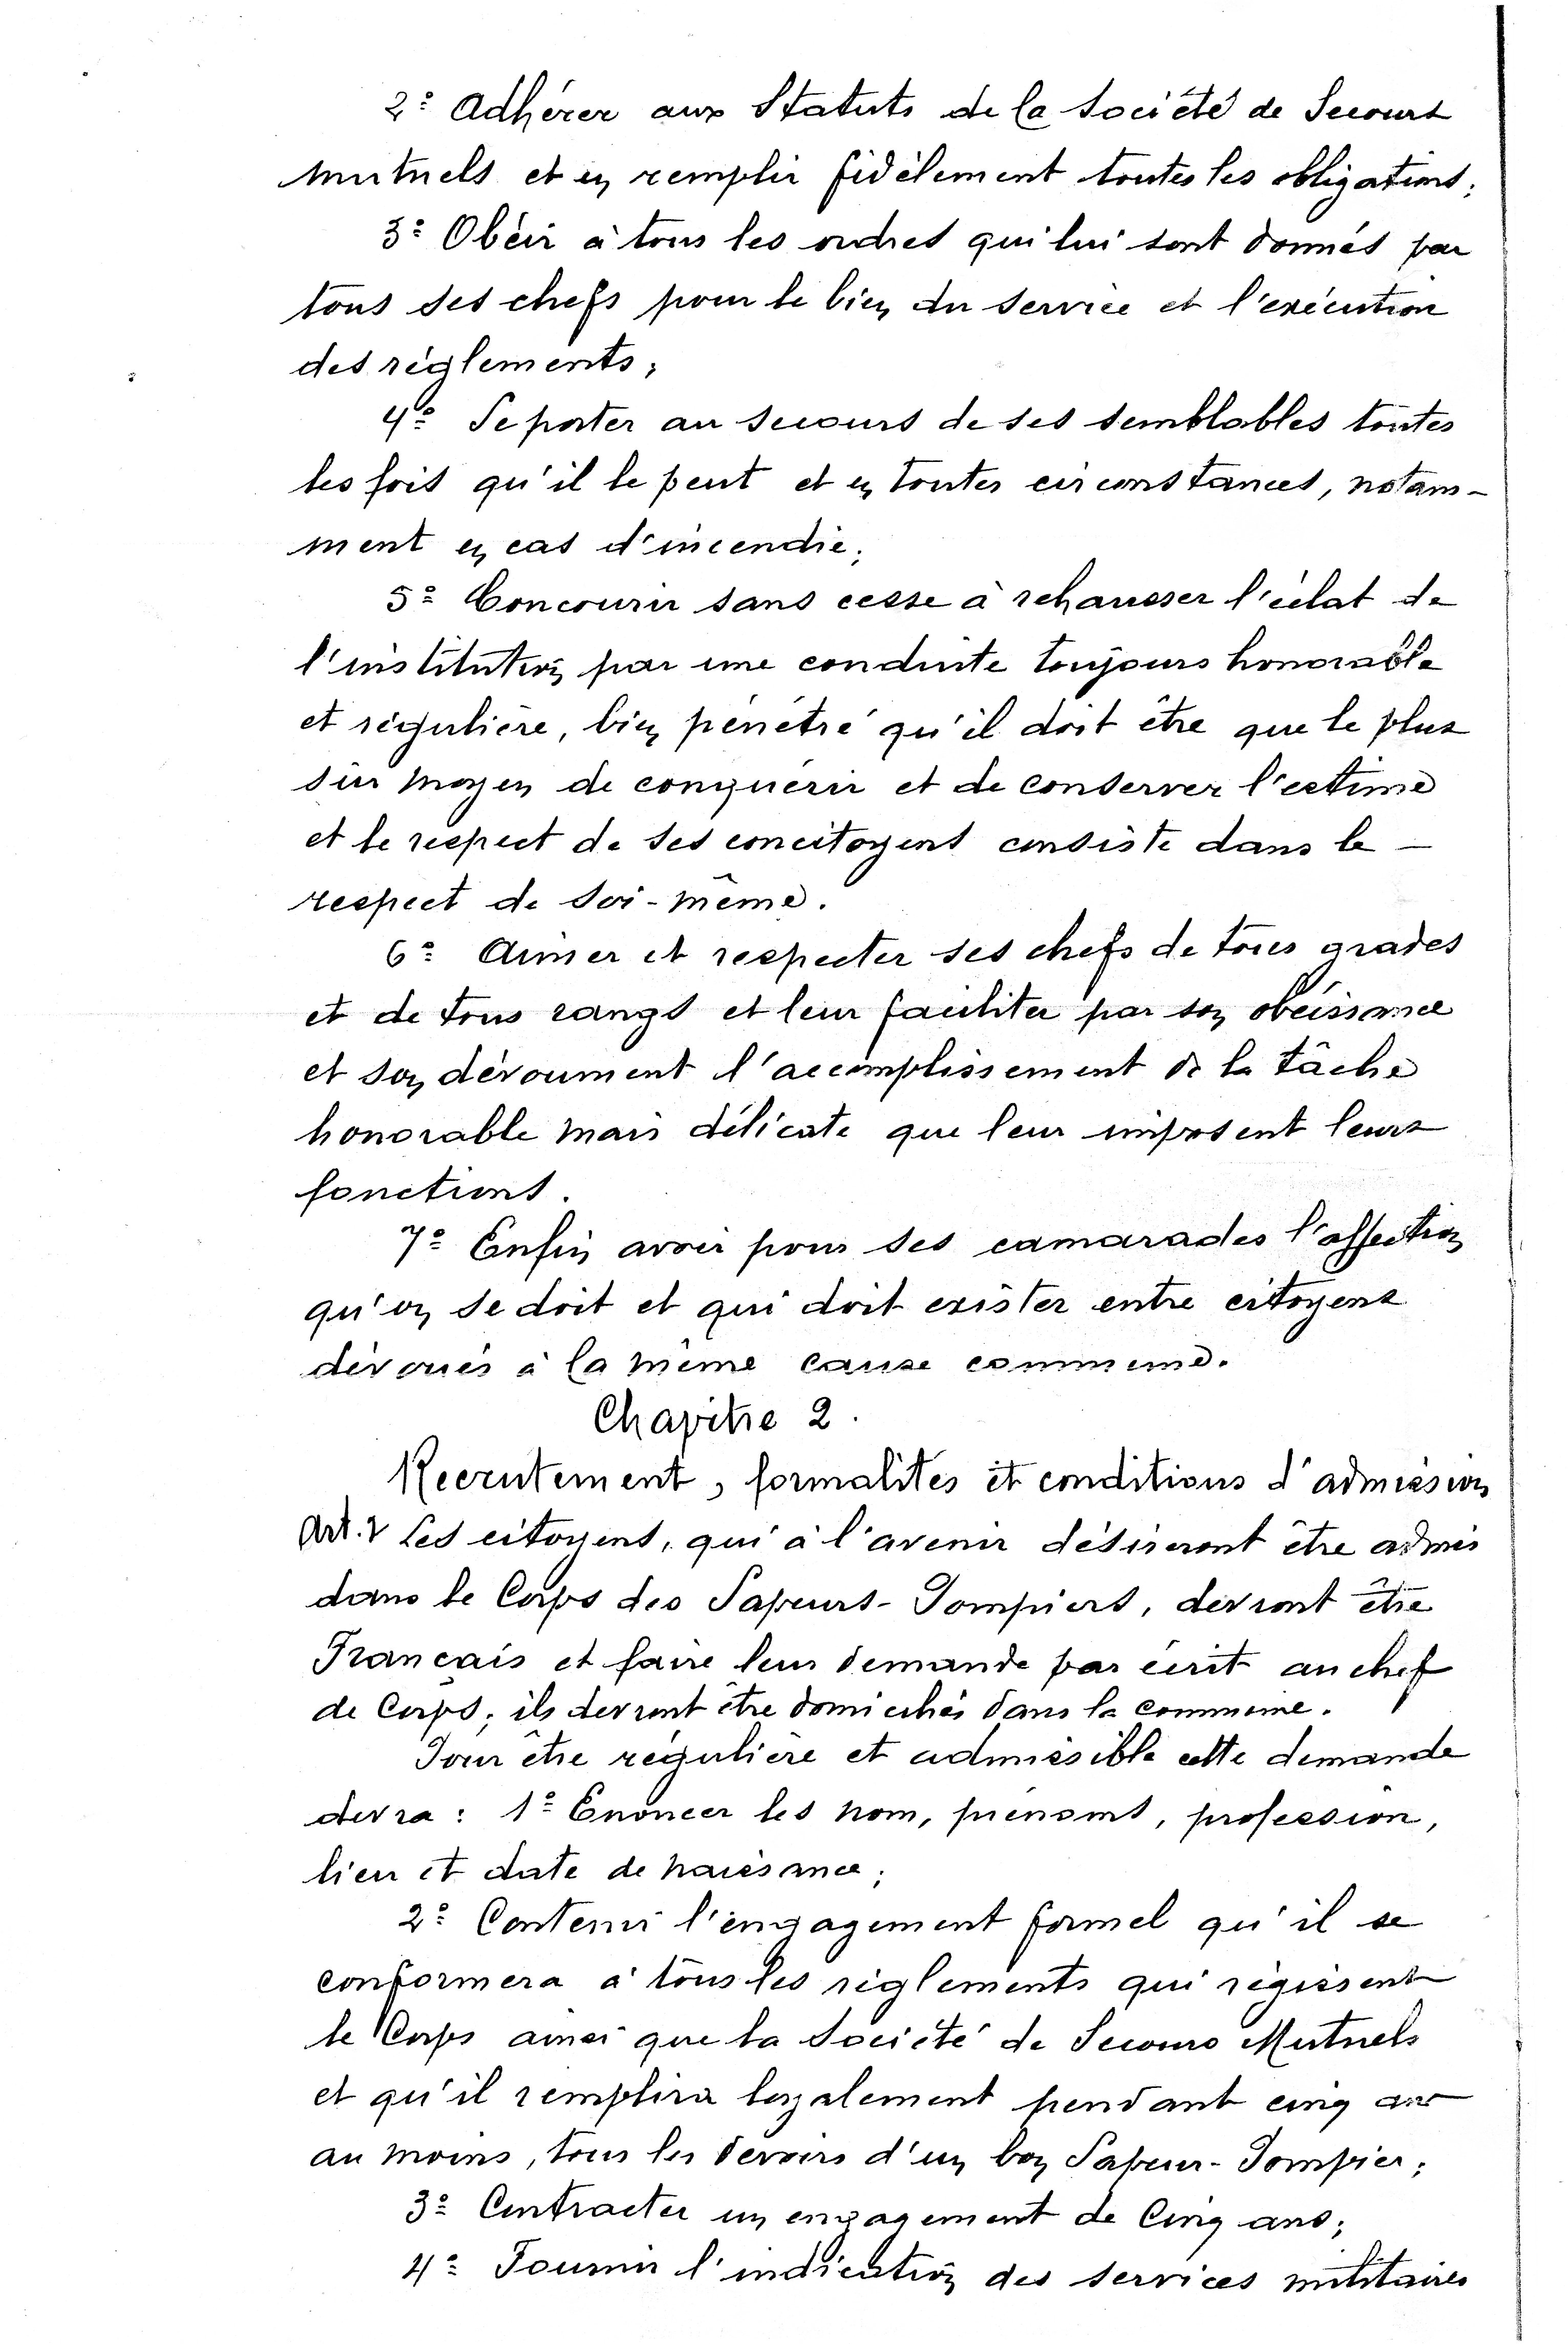 2° Adhérer aux Statuts de la Société de Secours
Mutuels et en remplir fidèlement toutes les obligations;
3° Obéir à tous les ordres qui lui sont donnés par
tous ses chefs pour le bien du service et l'exécution
des règlements;
4° Se porter au secours de ses semblables toutes
les fois qu'il le peut et en toutes circonstances, notam-
ment en cas d'incendie;
5° Concourir sans cesse à rehausser l'éclat de
l'institution par une conduite toujours honorable
et régulière, bien pénétré qu'il doit être que le plus
sûr moyen de conquérir et de conserver l'estime
et le respect de ses concitoyens consiste dans le -
respect de soi-même.
6° Aimer et respecter ses chefs de tous grades
et de tous rangs et leur faciliter par son obéissance
et son dévoument l'accomplissement de la tâche
honorable mais délicate que leur imposent leurs
fonctions.
7° Enfin avoir pour ses camarades l'affection
qu'on se doit et qui doit exister entre citoyens
dévoués à la même cause commune.
Chapitre 2.
Recrutement, formalités et conditions d'admission
Art. 2 Les citoyens, qui à l'avenir désireront être admis
dans le Corps des Sapeurs-Pompiers, devront être
Français et faire leur demande par écrit au chef
de Corps; ils devront être domiciliés dans la commune.
Pour être régulière et admissible cette demande
devra : 1° Enoncer les nom, prénoms, profession,
lieu et date de naissance;
2° Contenir l'engagement formel qu'il se
conformera à tous les règlements qui régissent
le Corps ainsi que la Société de Secours Mutuels
et qu'il remplira loyalement pendant cinq ans
au moins, tous les devoirs d'un bon Sapeur-Pompier;
3° Contracter un engagement de Cinq ans;
4° Fournir l'indication des services militaires